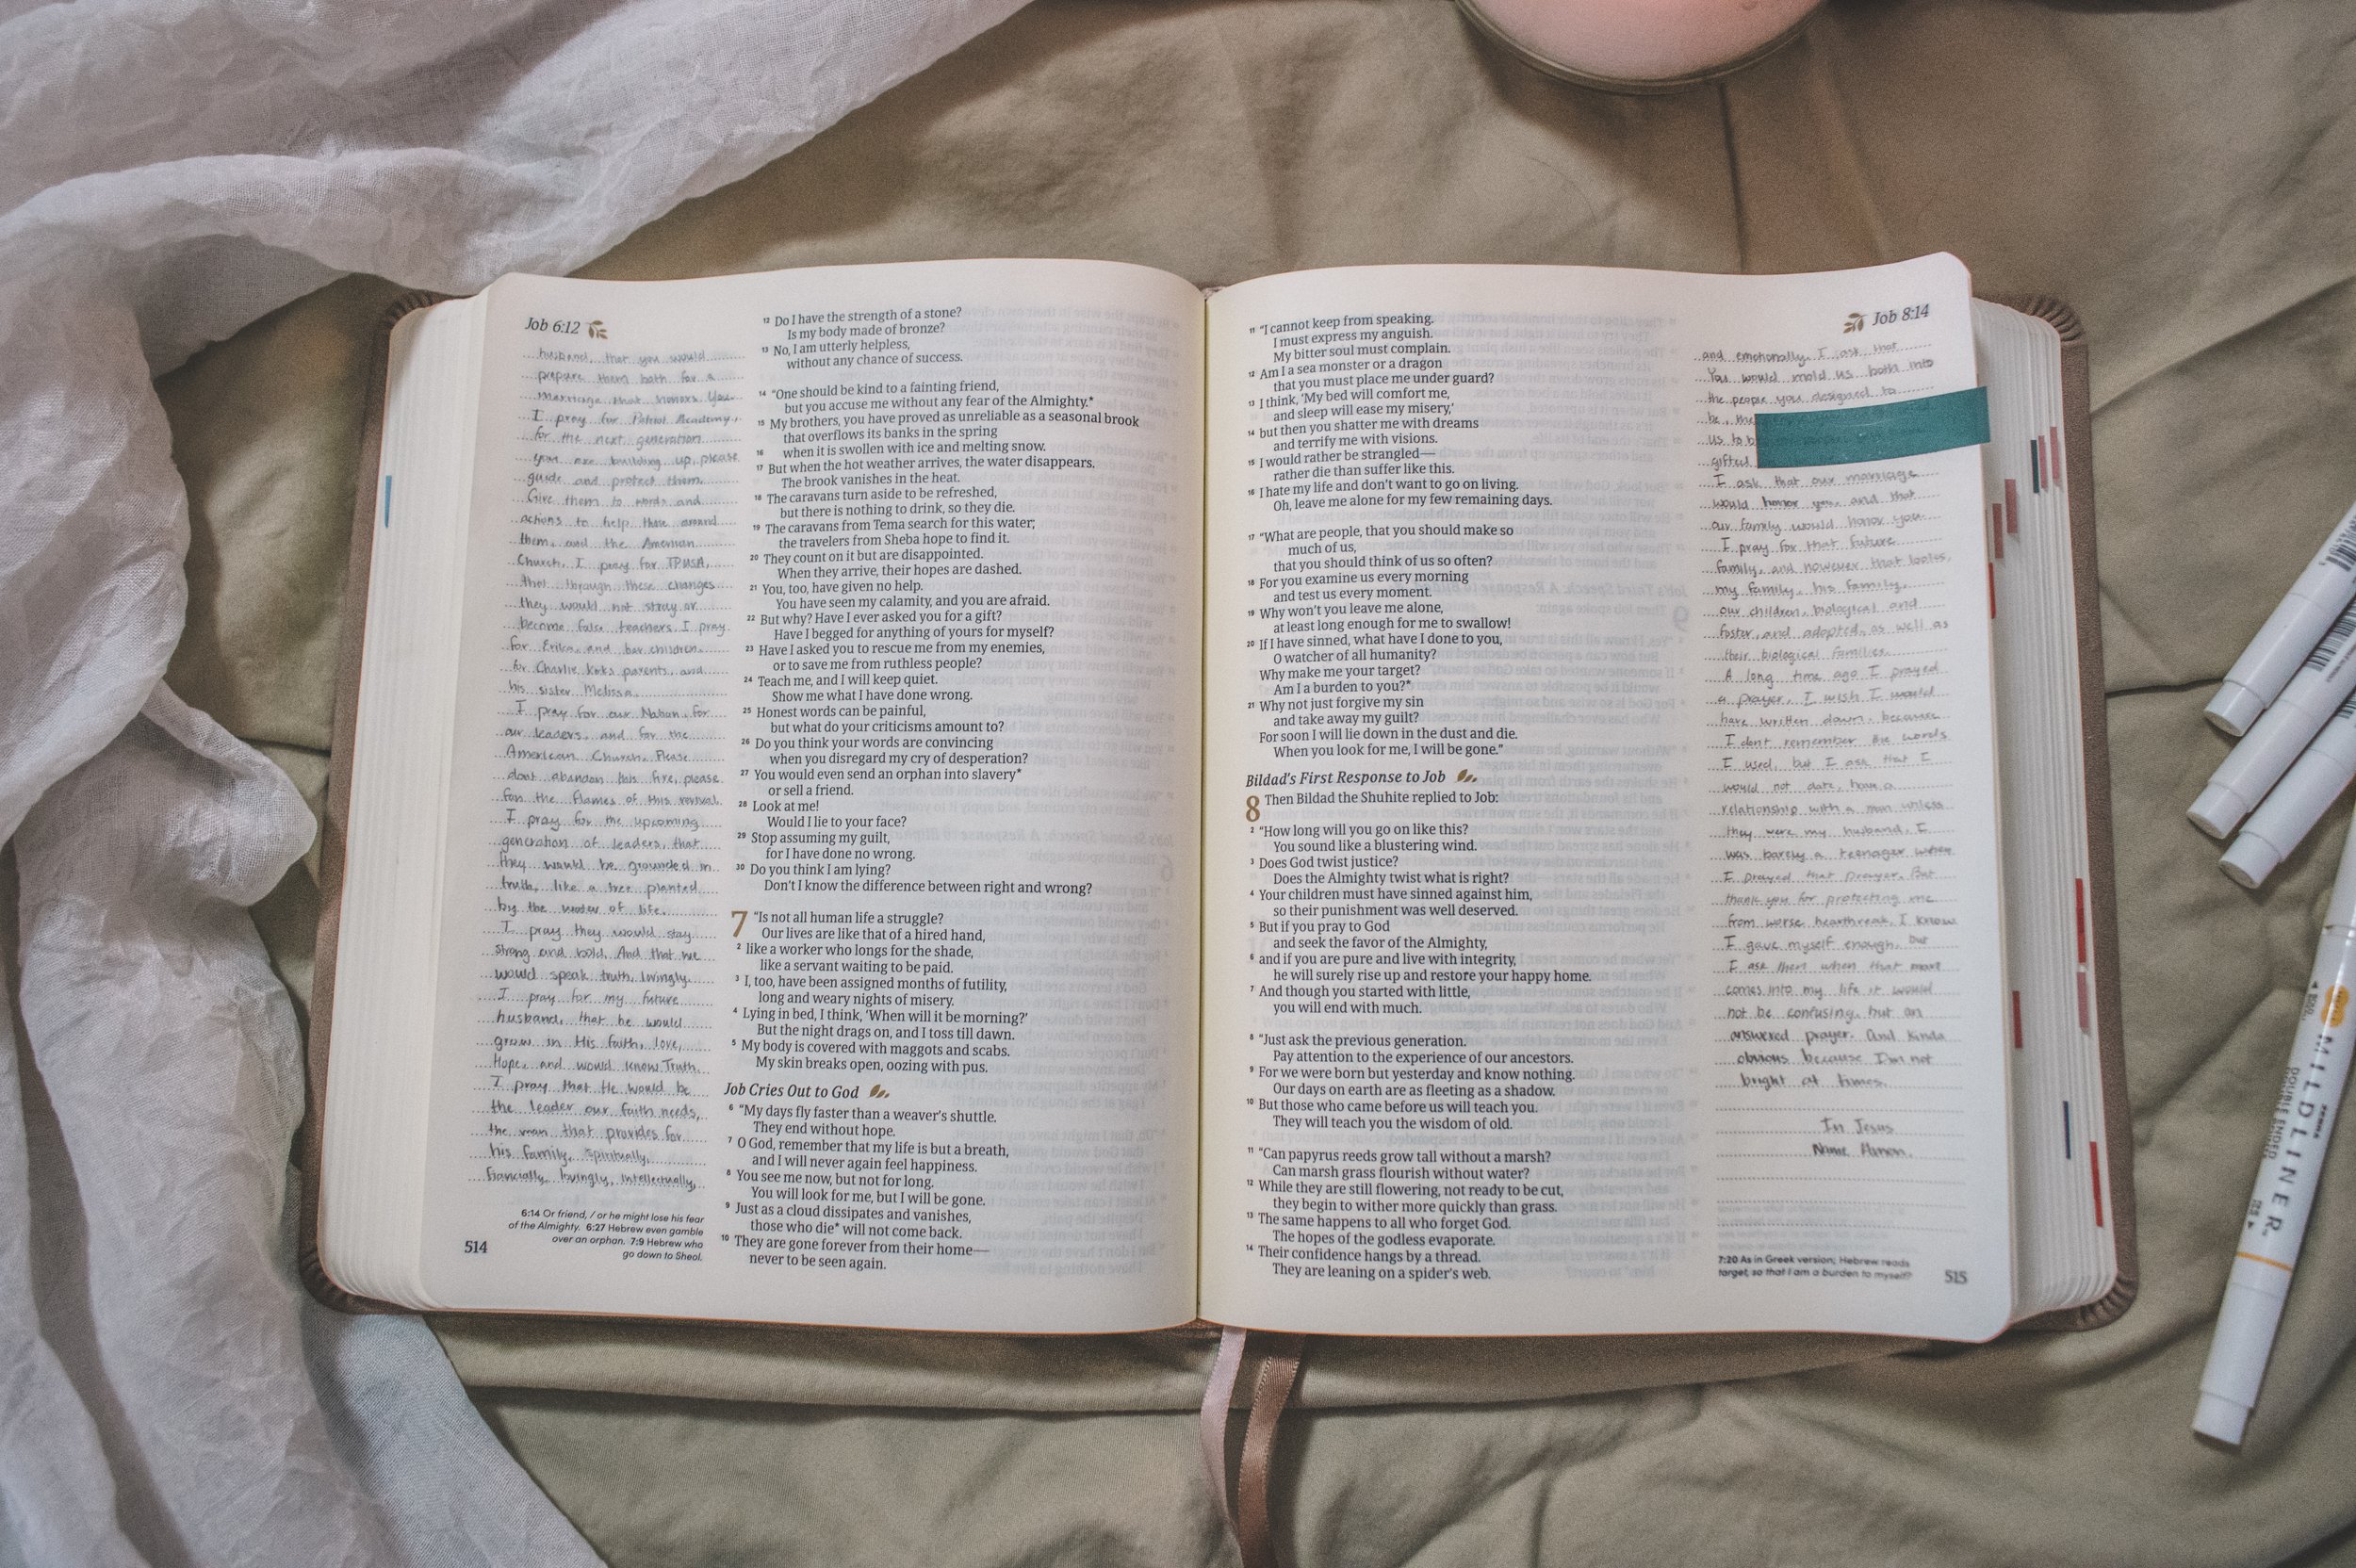 Job 6:12
husband, that you would
prepare them both for a
marriage that honors You.
I pray for Patriot Academy,
for the next generation
you are building up, please
guide and protect them.
Give them to words and
actions to help those around
them, and the American
Church, I pray for TPUSA,
that through these changes
they would not stray or
become false teachers. I pray
for Erika, and her children,
for Charlie Kirks parents, and
his sister Melissa.
I pray for our Nation, for
our leaders, and for the
American Church. Please
dont abandon this fire, please
fan the flames of this revival.
I pray for the upcoming
generation of leaders, that
they would be grounded in
truth, like a tree planted
by the water of life.
I pray they would stay
strong and bold. And that we
would speak truth, lovingly.
I pray for my future
husband, that he would
grow in His faith, love,
Hope, and would know Truth.
I pray that He would be
the leader our faith needs,
the man that provides for
his family, spiritually,
fiancially, lovingly, intellectually,
6:14 Or friend, / or he might lose his fear
of the Almighty. 6:27 Hebrew even gamble
over an orphan. 7:9 Hebrew who
go down to Sheol.
514
12 Do I have the strength of a stone?
Is my body made of bronze?
13 No, I am utterly helpless,
without any chance of success.
14 “One should be kind to a fainting friend,
but you accuse me without any fear of the Almighty.*
15 My brothers, you have proved as unreliable as a seasonal brook
that overflows its banks in the spring
16 when it is swollen with ice and melting snow.
17 But when the hot weather arrives, the water disappears.
The brook vanishes in the heat.
18 The caravans turn aside to be refreshed,
but there is nothing to drink, so they die.
19 The caravans from Tema search for this water;
the travelers from Sheba hope to find it.
20 They count on it but are disappointed.
When they arrive, their hopes are dashed.
21 You, too, have given no help.
You have seen my calamity, and you are afraid.
22 But why? Have I ever asked you for a gift?
Have I begged for anything of yours for myself?
23 Have I asked you to rescue me from my enemies,
or to save me from ruthless people?
24 Teach me, and I will keep quiet.
Show me what I have done wrong.
25 Honest words can be painful,
but what do your criticisms amount to?
26 Do you think your words are convincing
when you disregard my cry of desperation?
27 You would even send an orphan into slavery*
or sell a friend.
28 Look at me!
Would I lie to your face?
29 Stop assuming my guilt,
for I have done no wrong.
30 Do you think I am lying?
Don’t I know the difference between right and wrong?
7 “Is not all human life a struggle?
Our lives are like that of a hired hand,
2 like a worker who longs for the shade,
like a servant waiting to be paid.
3 I, too, have been assigned months of futility,
long and weary nights of misery.
4 Lying in bed, I think, ‘When will it be morning?’
But the night drags on, and I toss till dawn.
5 My body is covered with maggots and scabs.
My skin breaks open, oozing with pus.
Job Cries Out to God
6 “My days fly faster than a weaver’s shuttle.
They end without hope.
7 O God, remember that my life is but a breath,
and I will never again feel happiness.
8 You see me now, but not for long.
You will look for me, but I will be gone.
9 Just as a cloud dissipates and vanishes,
those who die* will not come back.
10 They are gone forever from their home—
never to be seen again.
11 “I cannot keep from speaking.
I must express my anguish.
My bitter soul must complain.
12 Am I a sea monster or a dragon
that you must place me under guard?
13 I think, ‘My bed will comfort me,
and sleep will ease my misery,’
14 but then you shatter me with dreams
and terrify me with visions.
15 I would rather be strangled—
rather die than suffer like this.
16 I hate my life and don’t want to go on living.
Oh, leave me alone for my few remaining days.
17 “What are people, that you should make so
much of us,
that you should think of us so often?
18 For you examine us every morning
and test us every moment.
19 Why won’t you leave me alone,
at least long enough for me to swallow!
20 If I have sinned, what have I done to you,
O watcher of all humanity?
Why make me your target?
Am I a burden to you?*
21 Why not just forgive my sin
and take away my guilt?
For soon I will lie down in the dust and die.
When you look for me, I will be gone.”
Bildad’s First Response to Job
8 Then Bildad the Shuhite replied to Job:
2 “How long will you go on like this?
You sound like a blustering wind.
3 Does God twist justice?
Does the Almighty twist what is right?
4 Your children must have sinned against him,
so their punishment was well deserved.
5 But if you pray to God
and seek the favor of the Almighty,
6 and if you are pure and live with integrity,
he will surely rise up and restore your happy home.
7 And though you started with little,
you will end with much.
8 “Just ask the previous generation.
Pay attention to the experience of our ancestors.
9 For we were born but yesterday and know nothing.
Our days on earth are as fleeting as a shadow.
10 But those who came before us will teach you.
They will teach you the wisdom of old.
11 “Can papyrus reeds grow tall without a marsh?
Can marsh grass flourish without water?
12 While they are still flowering, not ready to be cut,
they begin to wither more quickly than grass.
13 The same happens to all who forget God.
The hopes of the godless evaporate.
14 Their confidence hangs by a thread.
They are leaning on a spider’s web.
Job 8:14
and emotionally. I ask that
You would mold us both into
the people you designed to
be, the
us to b
gifted
I ask that our marriage
would honor you, and that
our family would honor you.
I pray for that future
family, and however that looks,
my family, his family,
our children, biological and
foster, and adopted, as well as
their biological families.
A long time ago I prayed
a prayer, I wish I would
have written down, because
I dont remember the words
I used, but I ask that I
would not date, have a
relationship with a man unless
they were my husband. I
was barely a teenager when
I prayed that prayer. But
thank you for protecting me
from worse heartbreak, I know
I gave myself enough, but
I ask then when that man
comes into my life it would
not be confusing, but an
answered prayer. And kinda
obvious because I'm not
bright at times.
In Jesus
Name Amen.
7:20 As in Greek version; Hebrew reads
target, so that I am a burden to myself?
515
MILDLINER
DOUBLE ENDED
ZEBRA